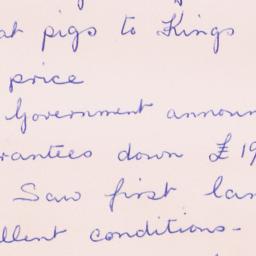 at pigs to Kings
price
Government announ
rantees down £19
Saw first lam
llent conditions-